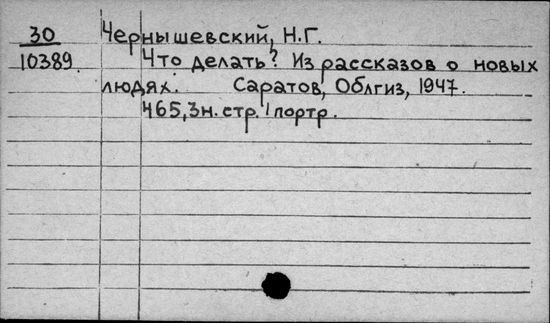 30 Чернышевский, Н.Г.
10389. Что делать? Из рассказов о новых
людях. Саратов, Облгиз, 1947.
465,3н. стр. 1 портр.